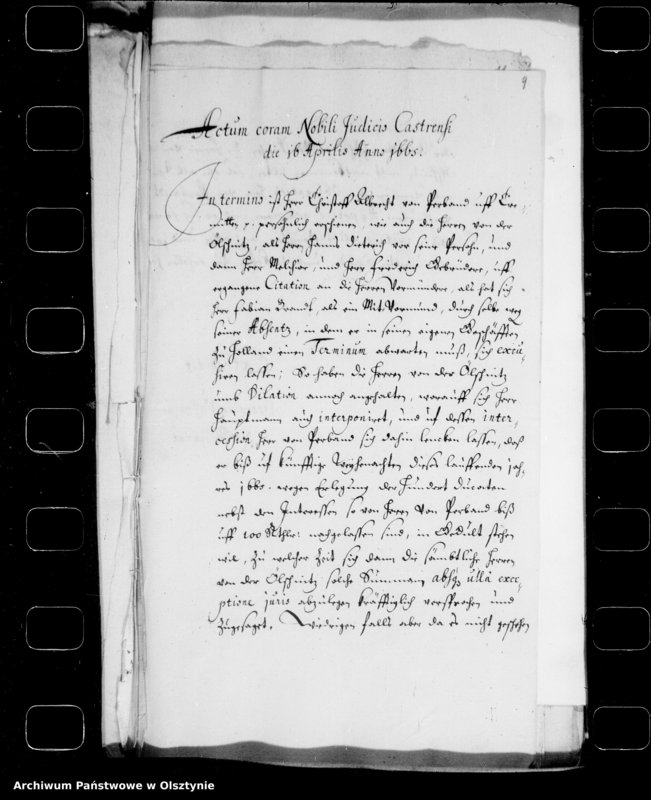 9
Actum coram Nobili Judicio Castrensi
die 16 Aprilis Anno 1665.
In termino ist Herr Christoff Albrecht von Perband uff
p. persöhnlich erschienen, wie auch die Herren von der
Ölschnitz, als Herr Hanns Dieterich vor seine Persohn, und
dann Herr Melchior, und Herr Friderich Gebrüdere, uff
ergangene Citation an die Herren Vormündere, als hat sich
Herr Fabian Brandt, als ein Mit Vormund, durch selbe weg
seiner Absentz, in dem er in seinen eigenen Geschäfften
zu Holland einen Terminum abwarten muß, sich excu-
siren lassen; So haben die Herren von der Ölschnitz
umb Dilation annoch angehalten, worauff sich Herr
Hauptmann auch interponiret, und uf dessen inter-
cession Herr von Perband sich dahin lencken lassen, daß
er biß uf künfftige Weyhenachten dieses lauffenden Jah-
res 1665. wegen Erlegung der Hundert Ducaten
nebst den Interessen so von Herrn von Perband biß
uff 100 Rthlr: nachgelassen sind, in Gedult stehen
wil, zu welcher Zeit sich dann die sämbtliche Herren
von der Ölschnitz solche Summam absq; ulla exce-
ptione juris abzulegen kräfftiglich versprochen und
zugesaget. Wiedrigen falls aber da es nicht geschehen
Archiwum Państwowe w Olsztynie